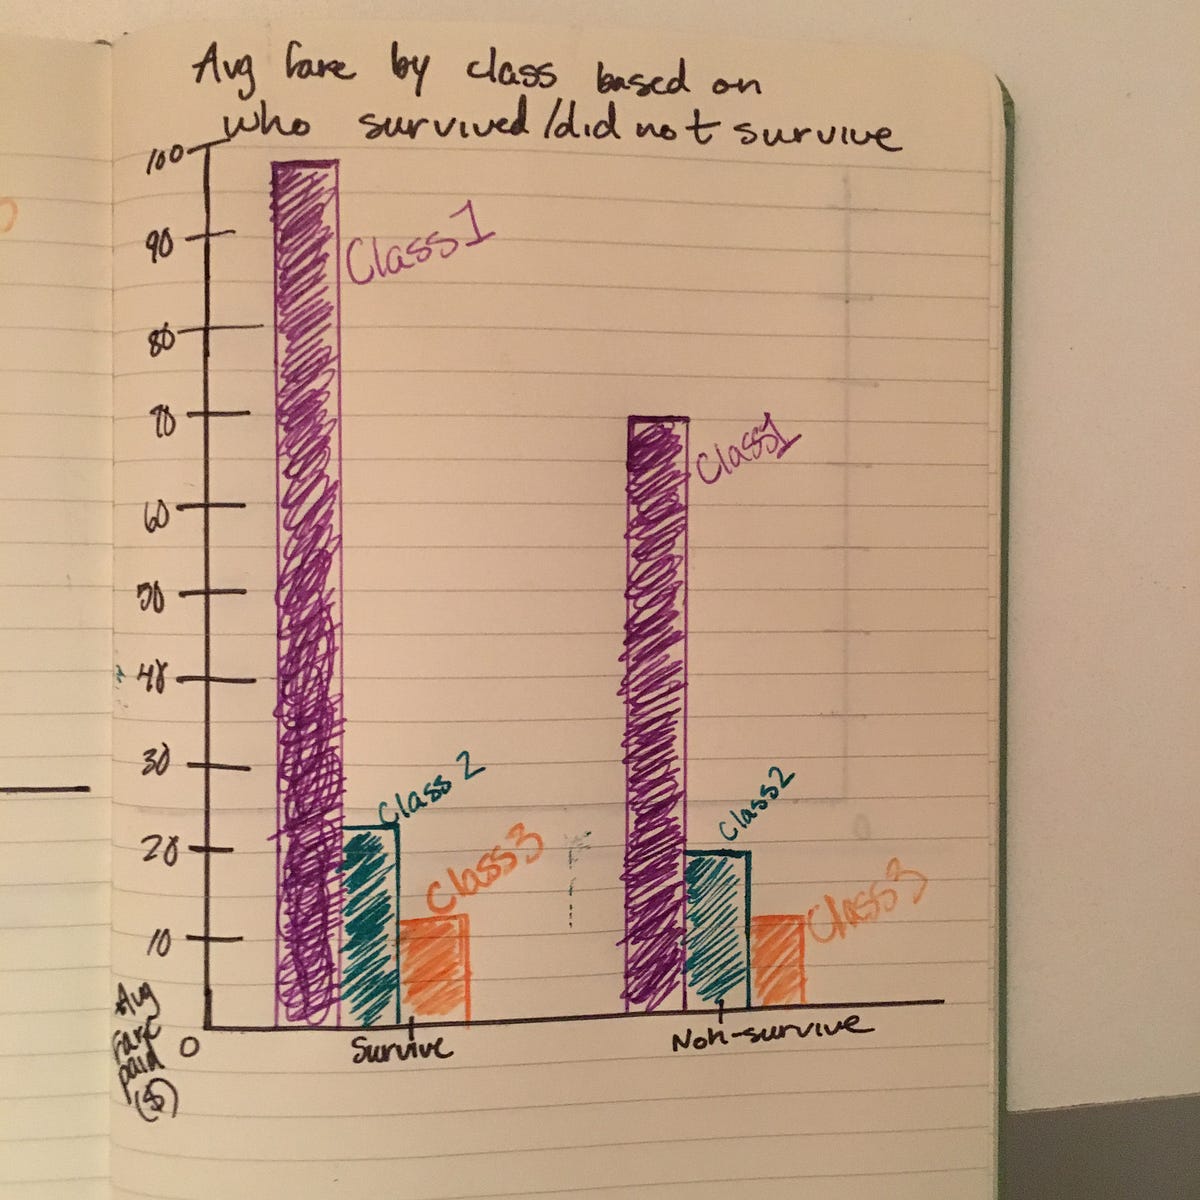 Avg fare by class based on
who survived/did not survive
100
90
80
70
60
50
40
30
20
10
0
Avg
Fare
paid
($)
Class 1
Class 2
Class 3
Survive
Class 1
Class 2
Class 3
Non-survive